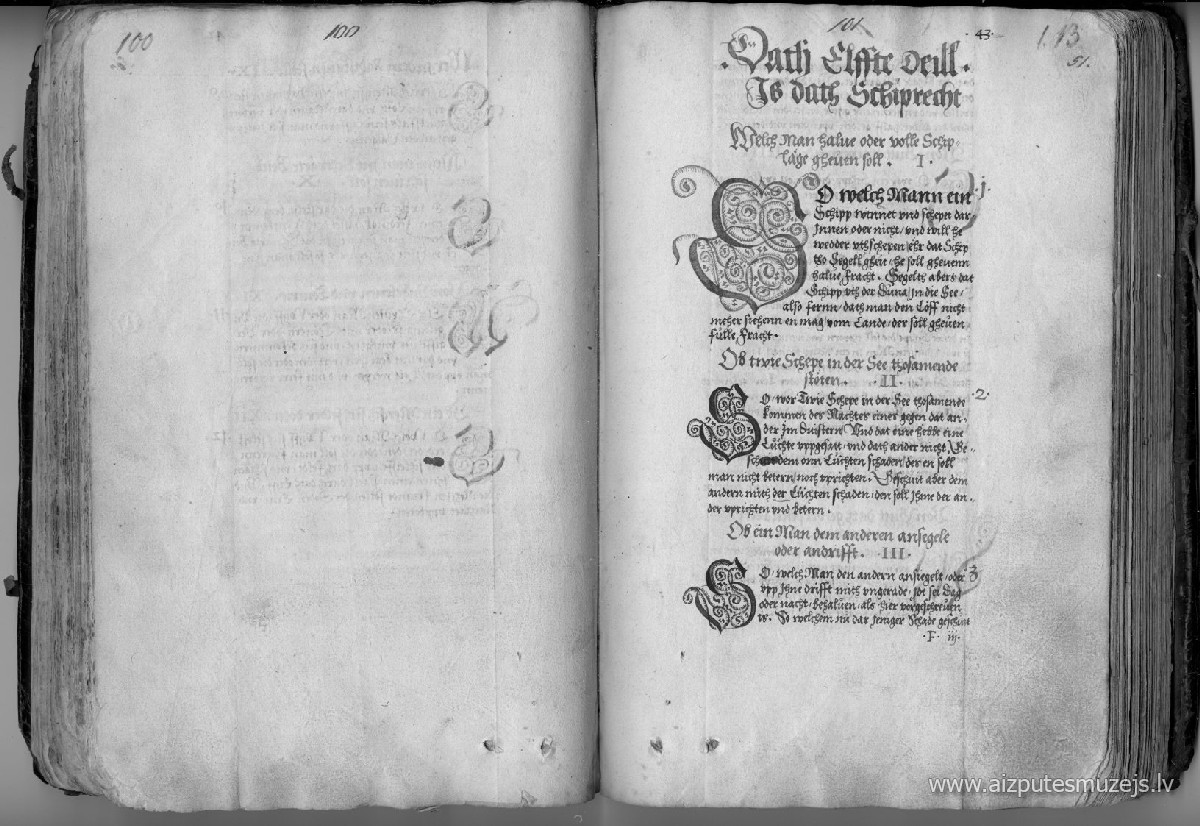 100
100
101
43
113
51.
Dath Elffte Deill
Is dath Schiprecht
Welch Man halue oder volle Schip-
läge gheuen soll. I.
SO welch Mann ein
1.
Schipp winnet vnd schepet dar
Innen oder nicht, vnd will he
wedder vthschepen, ehr dat Schip
tho Segell gheit, he soll gheuenn
halue Fracht. Segelts abers dat
Schipp vth der Düna, In die See,
also fernn, dath man den Löff nicht
meher siehenn en mag vom Lande, der soll gheuen
fulle Fracht.
Ob twie Schepe in der See thosamende
stöten. II.
2.
SO wor Twie Schepe in der See thosamende
kommen des Nachtes einer gegen dat an-
der Im Duistern Vnd dat eine hebbe eine
Lüchte vpgesatt, vnd dath ander nicht, Ge-
schut dem onn Lüchten schaden, der en soll
man nicht betern, noch vprichten. Geschuit aber dem
andern mith der Lüchten schaden, den soll Ihme der an-
der vprichten vnd betern.
Ob ein Man dem anderen ansegele
oder andrifft. III.
3
SO welch Man den andern ansegelt, oder
vpp Ihne drifft mith vngerade, Idt sei Dag
oder nacht, behaluen, als hier vorgeschreuen
is. So welchem nu dar jeniger Schade geschuit
F iij.
www.aizputesmuzejs.lv